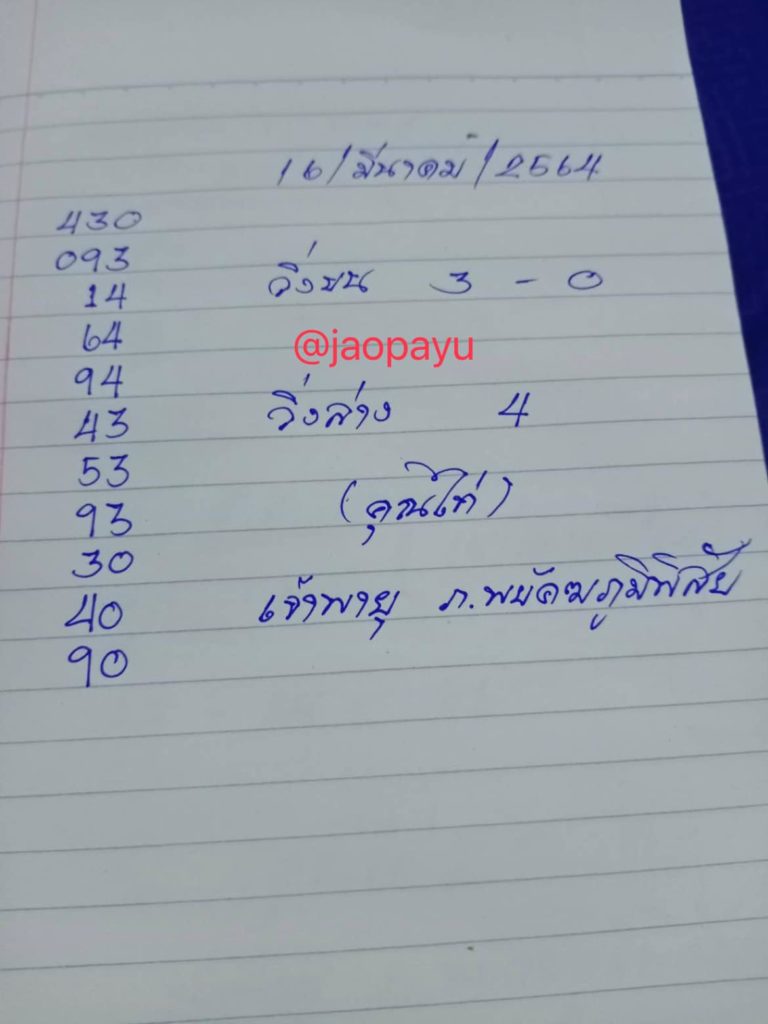 16/มีนาคม/2564
430
093
14
วิ่งบน 3 - 0
64
@jaopayu
94
43
วิ่งล่าง 4
53
93
30
40
เจ้าพายุ ภ.พยัคฆภูมิพิสัย
90